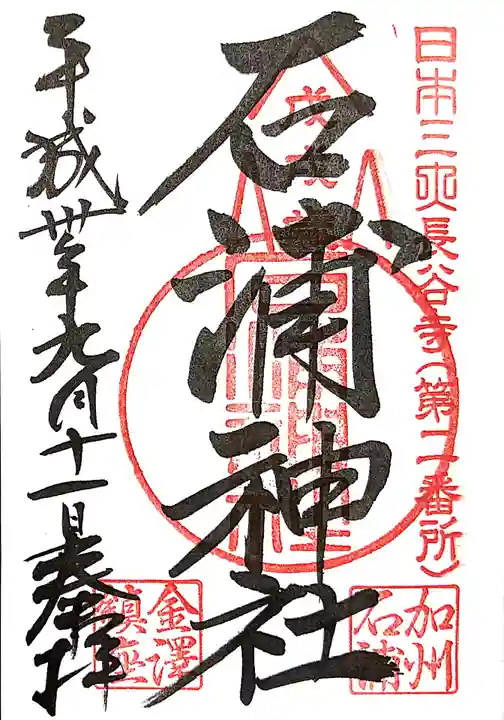 日本三大長谷寺(第二番所)
加州
石浦
石浦神社
金澤
鎮座
平成卅年九月十一日奉拝